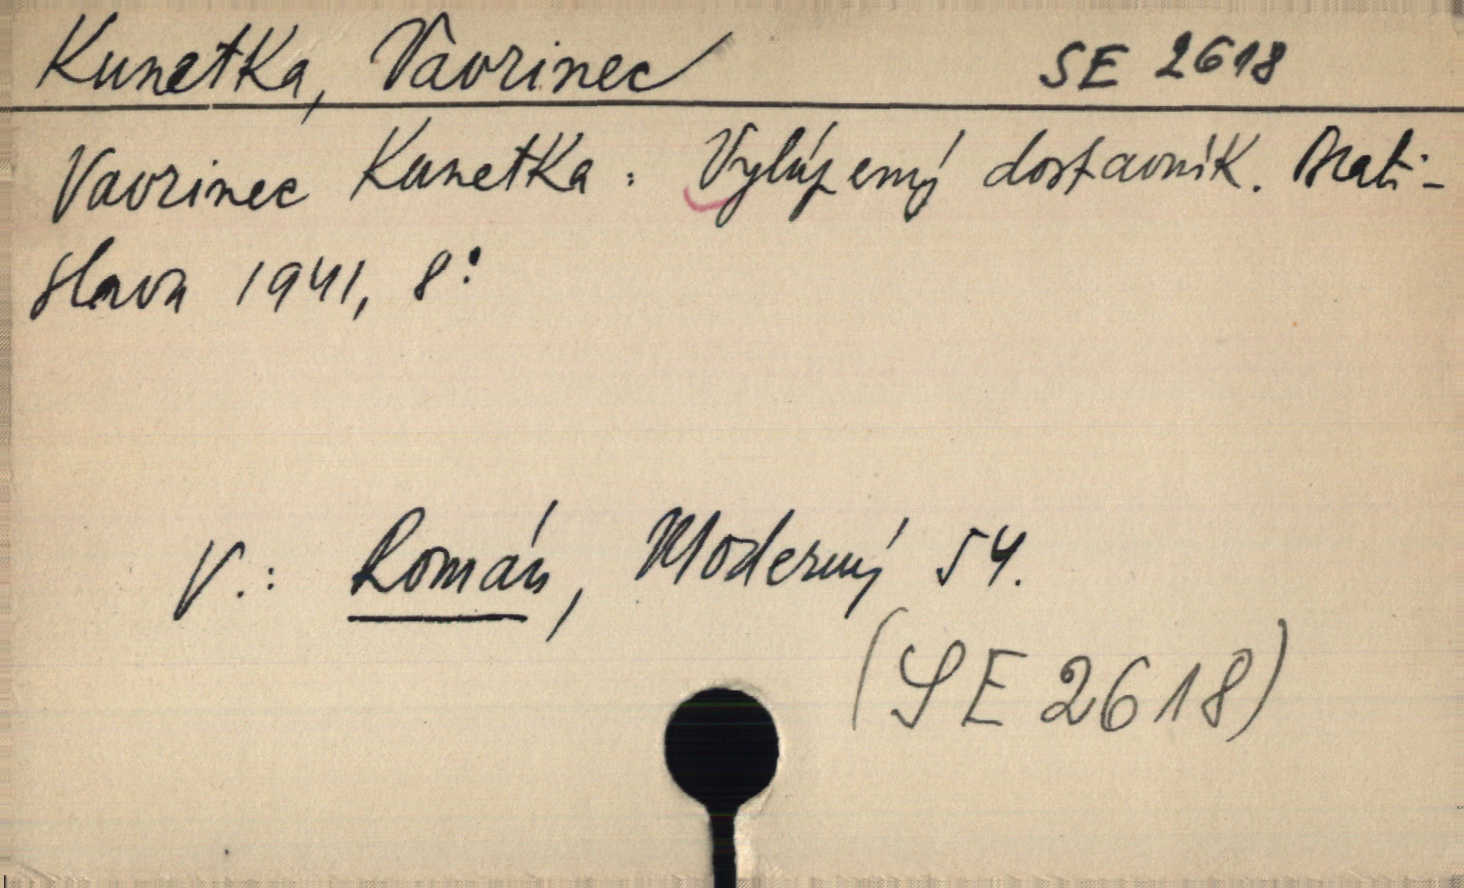 Kunetka, Vavrinec SE 2618
Vavrinec Kunetka: Vylúpený dostavník. Brati-
slava 1941, 8°
V.: Román, Moderný 54.
(SE 2618)